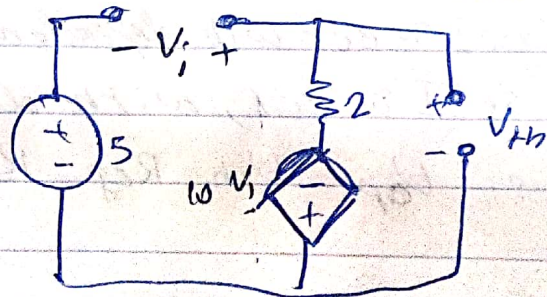 - Vi +
2
+
Vth
-
+
-
5
10 Vi
-
+